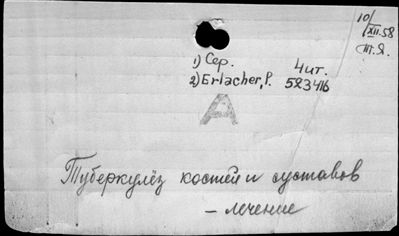 10/XII.58
Т.Я.
1) Сер. Чит.
2) Erlacher, P. 523416
А
Туберкулёз костей и суставов
– лечение